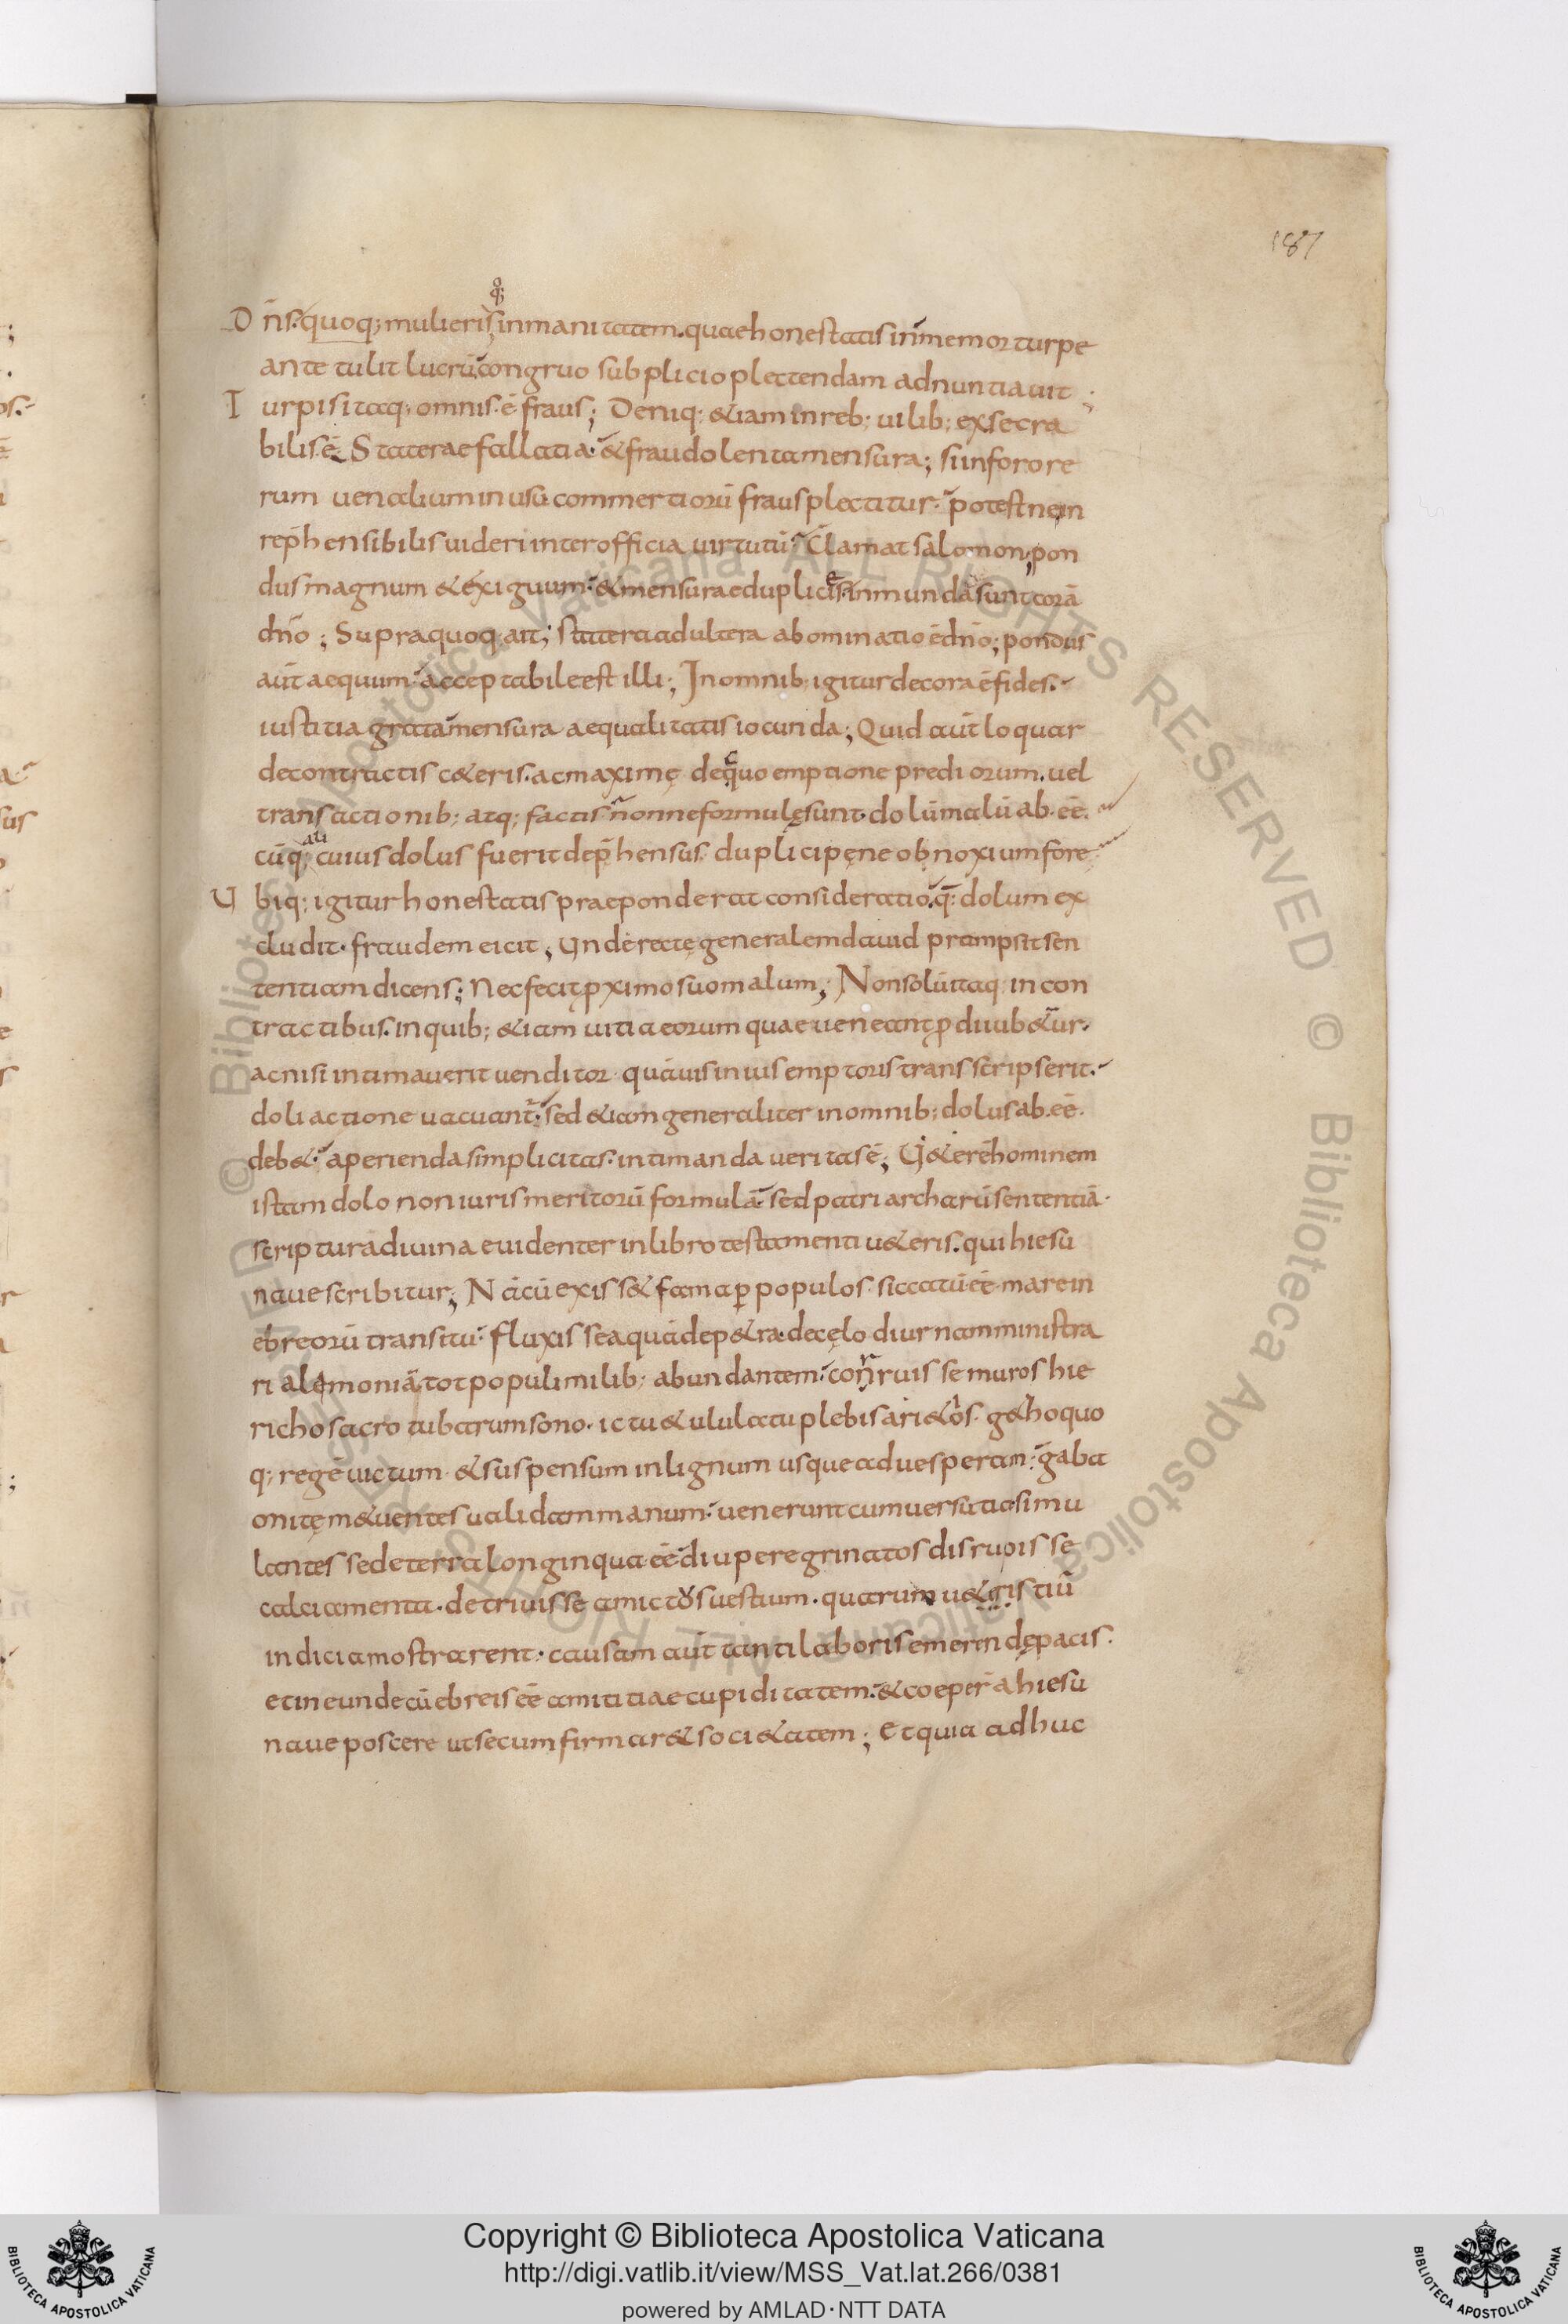 187
q;
Dn̄s. quoq; mulieris inmanitatem. quae honestatis inmemor turpe
ante tulit lucrū congruo subplicio plectendam adnuntiauit;
Turpis itaq; omnis ē fraus; Deniq; &iam in reb; uilib; exsecra
bilis ē. Staterae fallatia. & fraudolenta mensura; si in foro re
rum uenalium in usū commertiorū fraus plectitur. potest ne in
rep̄hensibilis uideri inter officia uirtutū. Clamat salomon; pon
dus magnum & exiguum. & mensurae duplicis inmunda sunt corā
dn̄o; Supra quoq; ait; statera adultera abominatio ē dn̄o; pondus
aūt aequum. acceptabile est illi; In omnib; igitur decora ē fides.
iustitia grata mensura aequalitatis iocunda; Quid aūt loquar
de contractis c&eris. ac maximę de quo emptione prediorum. uel
transactionib; atq; factis nonne formulę sunt. dolū malū ab. eē.
au
cūq; cuius dolus fuerit dep̄hensus. duplici pęne obnoxium fore
Ubiq; igitur honestatis praeponderat consideratio. q̄: dolum ex
cludit. fraudem eicit; Unde rectę generalem dauid prompsit sen
tentiam dicens; Nec fecit pximo suo malum; Non solū itaq; in con
tractibus. in quib; &iam uitia eorum quae ueneant p̄di iub&ur.
ac nisi intimauerit uenditor quāuis in ius emptoris transscripserit.
doli actione uacuant̄. sed &iam generaliter in omnib; dolus ab. eē.
deb&. aperienda simplicitas. intimanda ueritas ē; U&erē hominem
istam dolo non iuris meritorū formulā. sed patriarcharū sententiā.
scriptura diuina euidenter in libro testamenti u&eris. qui hiesū
naue scribitur; Nācū exiss& fama p̱ populos. siccatū eē mare in
ebreorū transitu. fluxisse aquā de p&ra. de cęlo diurnam ministra
ri alemoniā tot populi milib; abundantem. conruisse muros hie
richo sacro tubarum sono. ictu & ululatu plebis ari&os. g&h oquo
q; regē uictum. & suspensum in lignum usque ad uesperam. gaba
onitę m&uentes ualidam manum. uenerunt cum uersutia simu
lantes se de terra longinqua eē. diu peregrinatos disruoisse
calciamenta. detriuisse amictos uestium. quarum u&gis tiū
indicia mostrarent. causam aūt tanti laboris emerendę pacis.
et ineunde cū ebreis eē amititiae cupiditatem. & coeper̄ a hiesū
naue poscere ut secum firmar& soci&atem; Et quia adhuc
Copyright © Biblioteca Apostolica Vaticana
http://digi.vatlib.it/view/MSS_Vat.lat.266/0381
powered by AMLAD · NTT DATA
BIBLIOTECA APOSTOLICA VATICANA
BIBLIOTECA APOSTOLICA VATICANA
© Biblioteca Apostolica Vaticana ALL RIGHTS RESERVED © Biblioteca Apostolica Vaticana ALL RIGHTS RESERVED